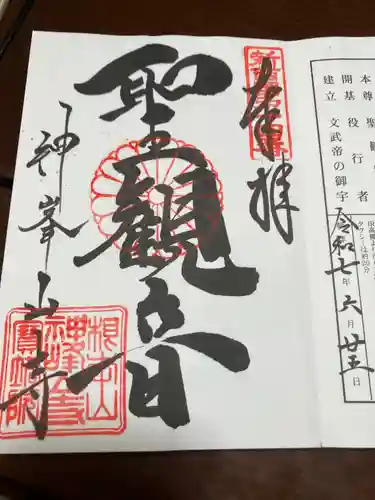 本尊 聖観
開基 役行者
建立 文武帝の御宇
令和七年六月廿五日
奉拝
聖観音
神峯山寺
根本山
神峰山寺
寳塔院